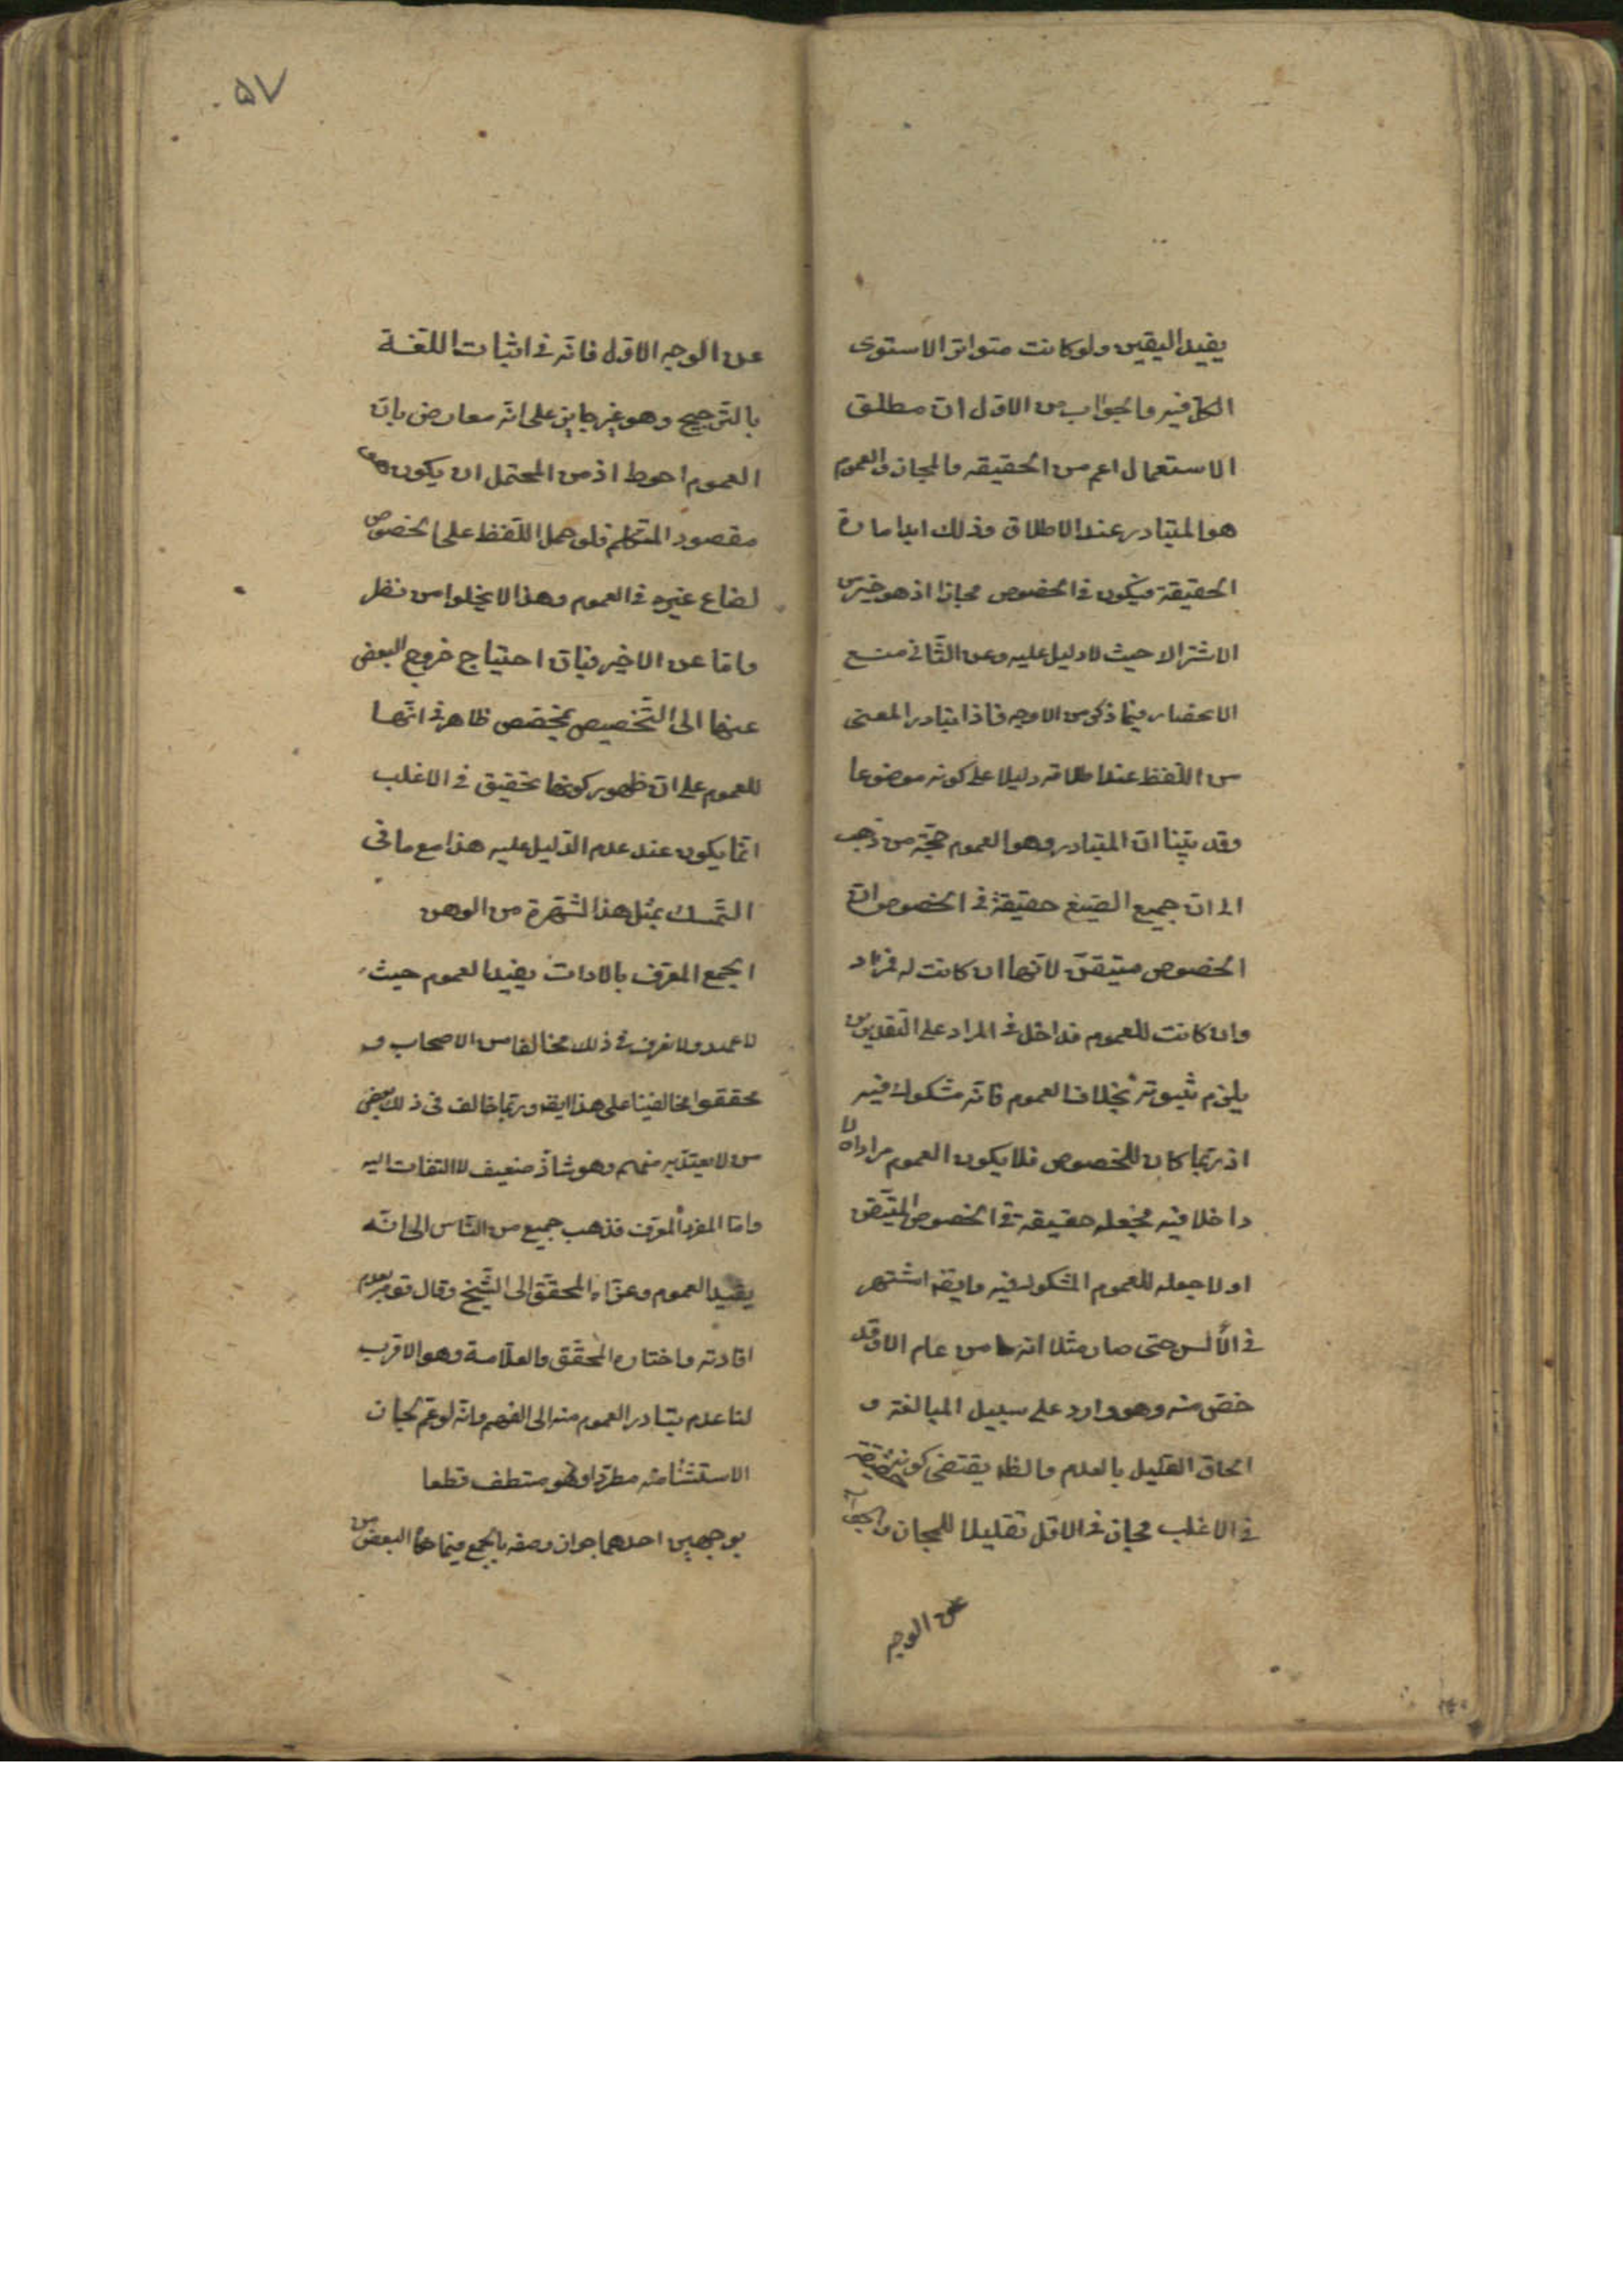 يفيد اليقين ولو كانت متواترا لاستوى
الكل فيه والجواب من الاول ان مطلق
الاستعمال اعم من الحقيقه والمجاز والعموم
هو المتبادر عند الاطلاق وذلك امارة
الحقيقة فيكون في الخصوص مجازا اذ هو خير من
الاشتراك حيث لا دليل عليه وعن الثاني منع
الانحصار فيما ذكر من الاوجه فاذا تبادر المعنى
من اللفظ عند اطلاقه دليلا على كونه موضوعا
وقد بينا ان المتبادر وهو العموم حجة من ذهب
الى ان جميع الصيغ حقيقة في الخصوص ان
الخصوص متيقن لانها ان كانت له فمراد
وان كانت للعموم فداخل في المراد على التقديرين
يلزم ثبوته بخلاف العموم فانه مشكوك فيه
اذ ربما كان للخصوص فلا يكون العموم مرادا ولا
داخلا فيه فجعله حقيقه في الخصوص المتيقن
اولا جعله للعموم المشكوك فيه وايضا اشتهر
في الألسن حتى صار مثلا انه ما من عام الا وقد
خص منه وهو وارد على سبيل المبالغة و
الحاق القليل بالعدم والظ يقتضى كونه حقيقة
في الاغلب مجاز في الاقل تقليلا للمجاز والجواب
عن الوجه
٥٧
عن الوجه الاول فانه في اثبات اللغة
بالترجيح وهو غير جايز على انه معارض بان
العموم احوط اذ من المحتمل ان يكون هو
مقصود المتكلم فلو حمل اللفظ على الخصوص
لضاع غيره في العموم وهذا لا يخلوا من نظر
واما عن الاخير فبان احتياج خروج البعض
عنها الى التخصيص بمخصص ظاهر في انها
للعموم على ان ظهور كونها تحقيق في الاغلب
انما يكون عند عدم الدليل عليه هذا مع ما في
التمسك بمثل هذا الشهرة من الوهن
الجمع المعرف بالادات يفيد العموم حيث
لا عهد ولا نعرف في ذلك مخالفا من الاصحاب و
محققوا مخالفينا على هذا ايضا وربما خالف في ذلك بعض
من لا يعتد به منهم وهو شاذ ضعيف لا التفات اليه
واما المفرد المعرف فذهب جميع من الناس الى انه
يفيد العموم وعزاه المحقق الى الشيخ وقال قوم بعدم
افادته واختاره المحقق والعلامة وهو الاقرب
لنا عدم تبادر العموم منه الى الفهم وانه لو عم لجاز
الاستثناء منه مطردا وهو منتف قطعا
بوجهين احدهما جواز وصفه بالجمع فيما حكاه البعض من